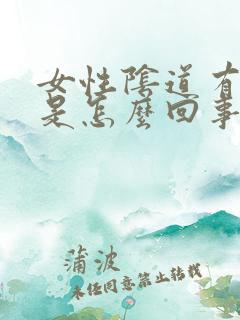 女性陰道有
是怎麼回事
蒲波
未经同意禁止转载